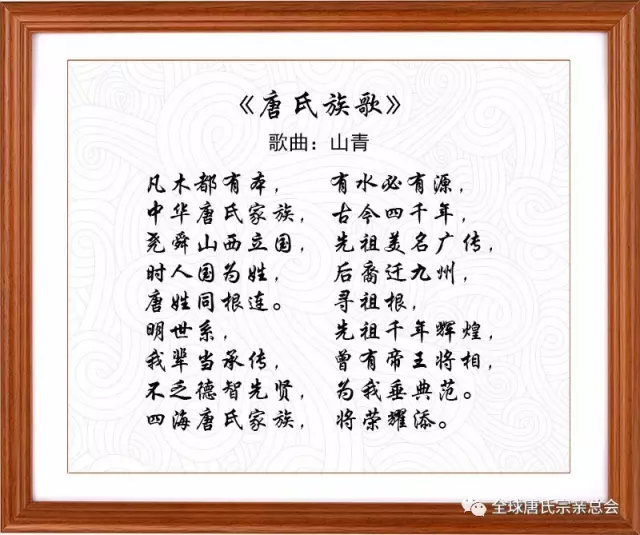 《唐氏族歌》
歌曲：山青
凡木都有本， 有水必有源，
中华唐氏家族， 古今四千年，
尧舜山西立国， 先祖美名广传，
时人国为姓， 后裔迁九州，
唐姓同根连。 寻祖根，
明世系， 先祖千年辉煌，
我辈当承传， 曾有帝王将相，
不乏德智先贤， 为我垂典范。
四海唐氏家族， 将荣耀添。
全球唐氏宗亲总会